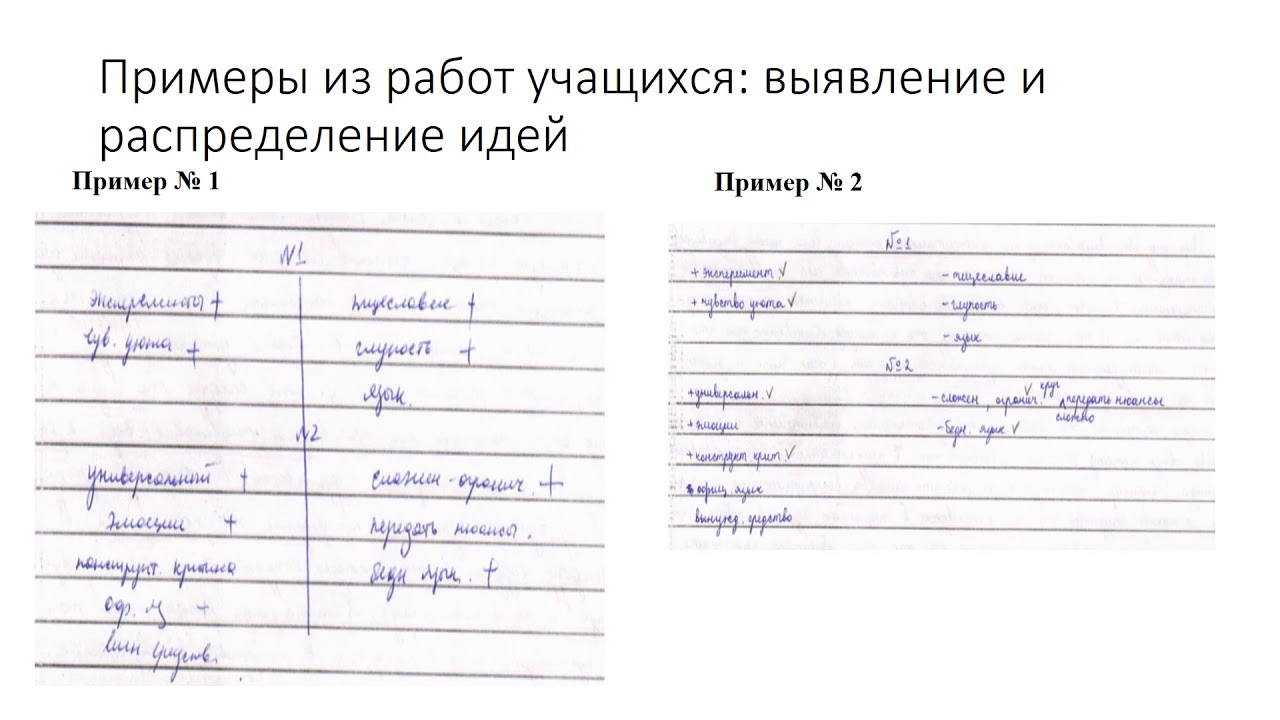 Примеры из работ учащихся: выявление и
распределение идей
Пример № 1
Пример № 2
N1
эксперименты + тщеславие +
чув. уюта + глупость +
язык.
№2
универсальный + сложен-огранич. +
эмоции + передать нюансы.
конструкт. критика бедн язык. +
оф. яз +
средств.
№1
+ эксперимент. √ - тщеславие
+ чувство уюта √ - глупость
- язык
№2
+универсальн. √ - сложен, огранич. √ круг передать нюансы
сложно
+ эмоции - бедн. язык √
+ конструкт. крит. √
офиц. язык
вынужд. средство